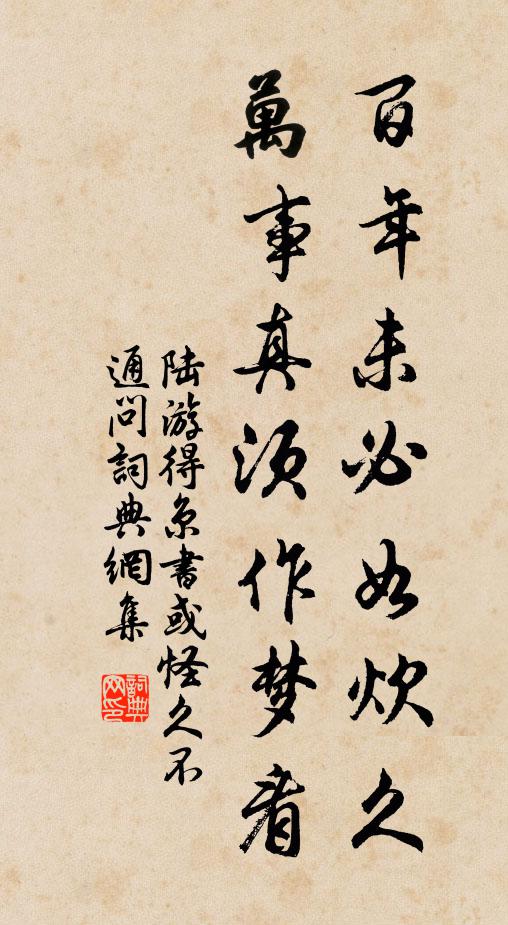 百年未必如炊久
萬事真須作梦看
陆游得京書或怪久不
通问詞典網集
詞典
网印